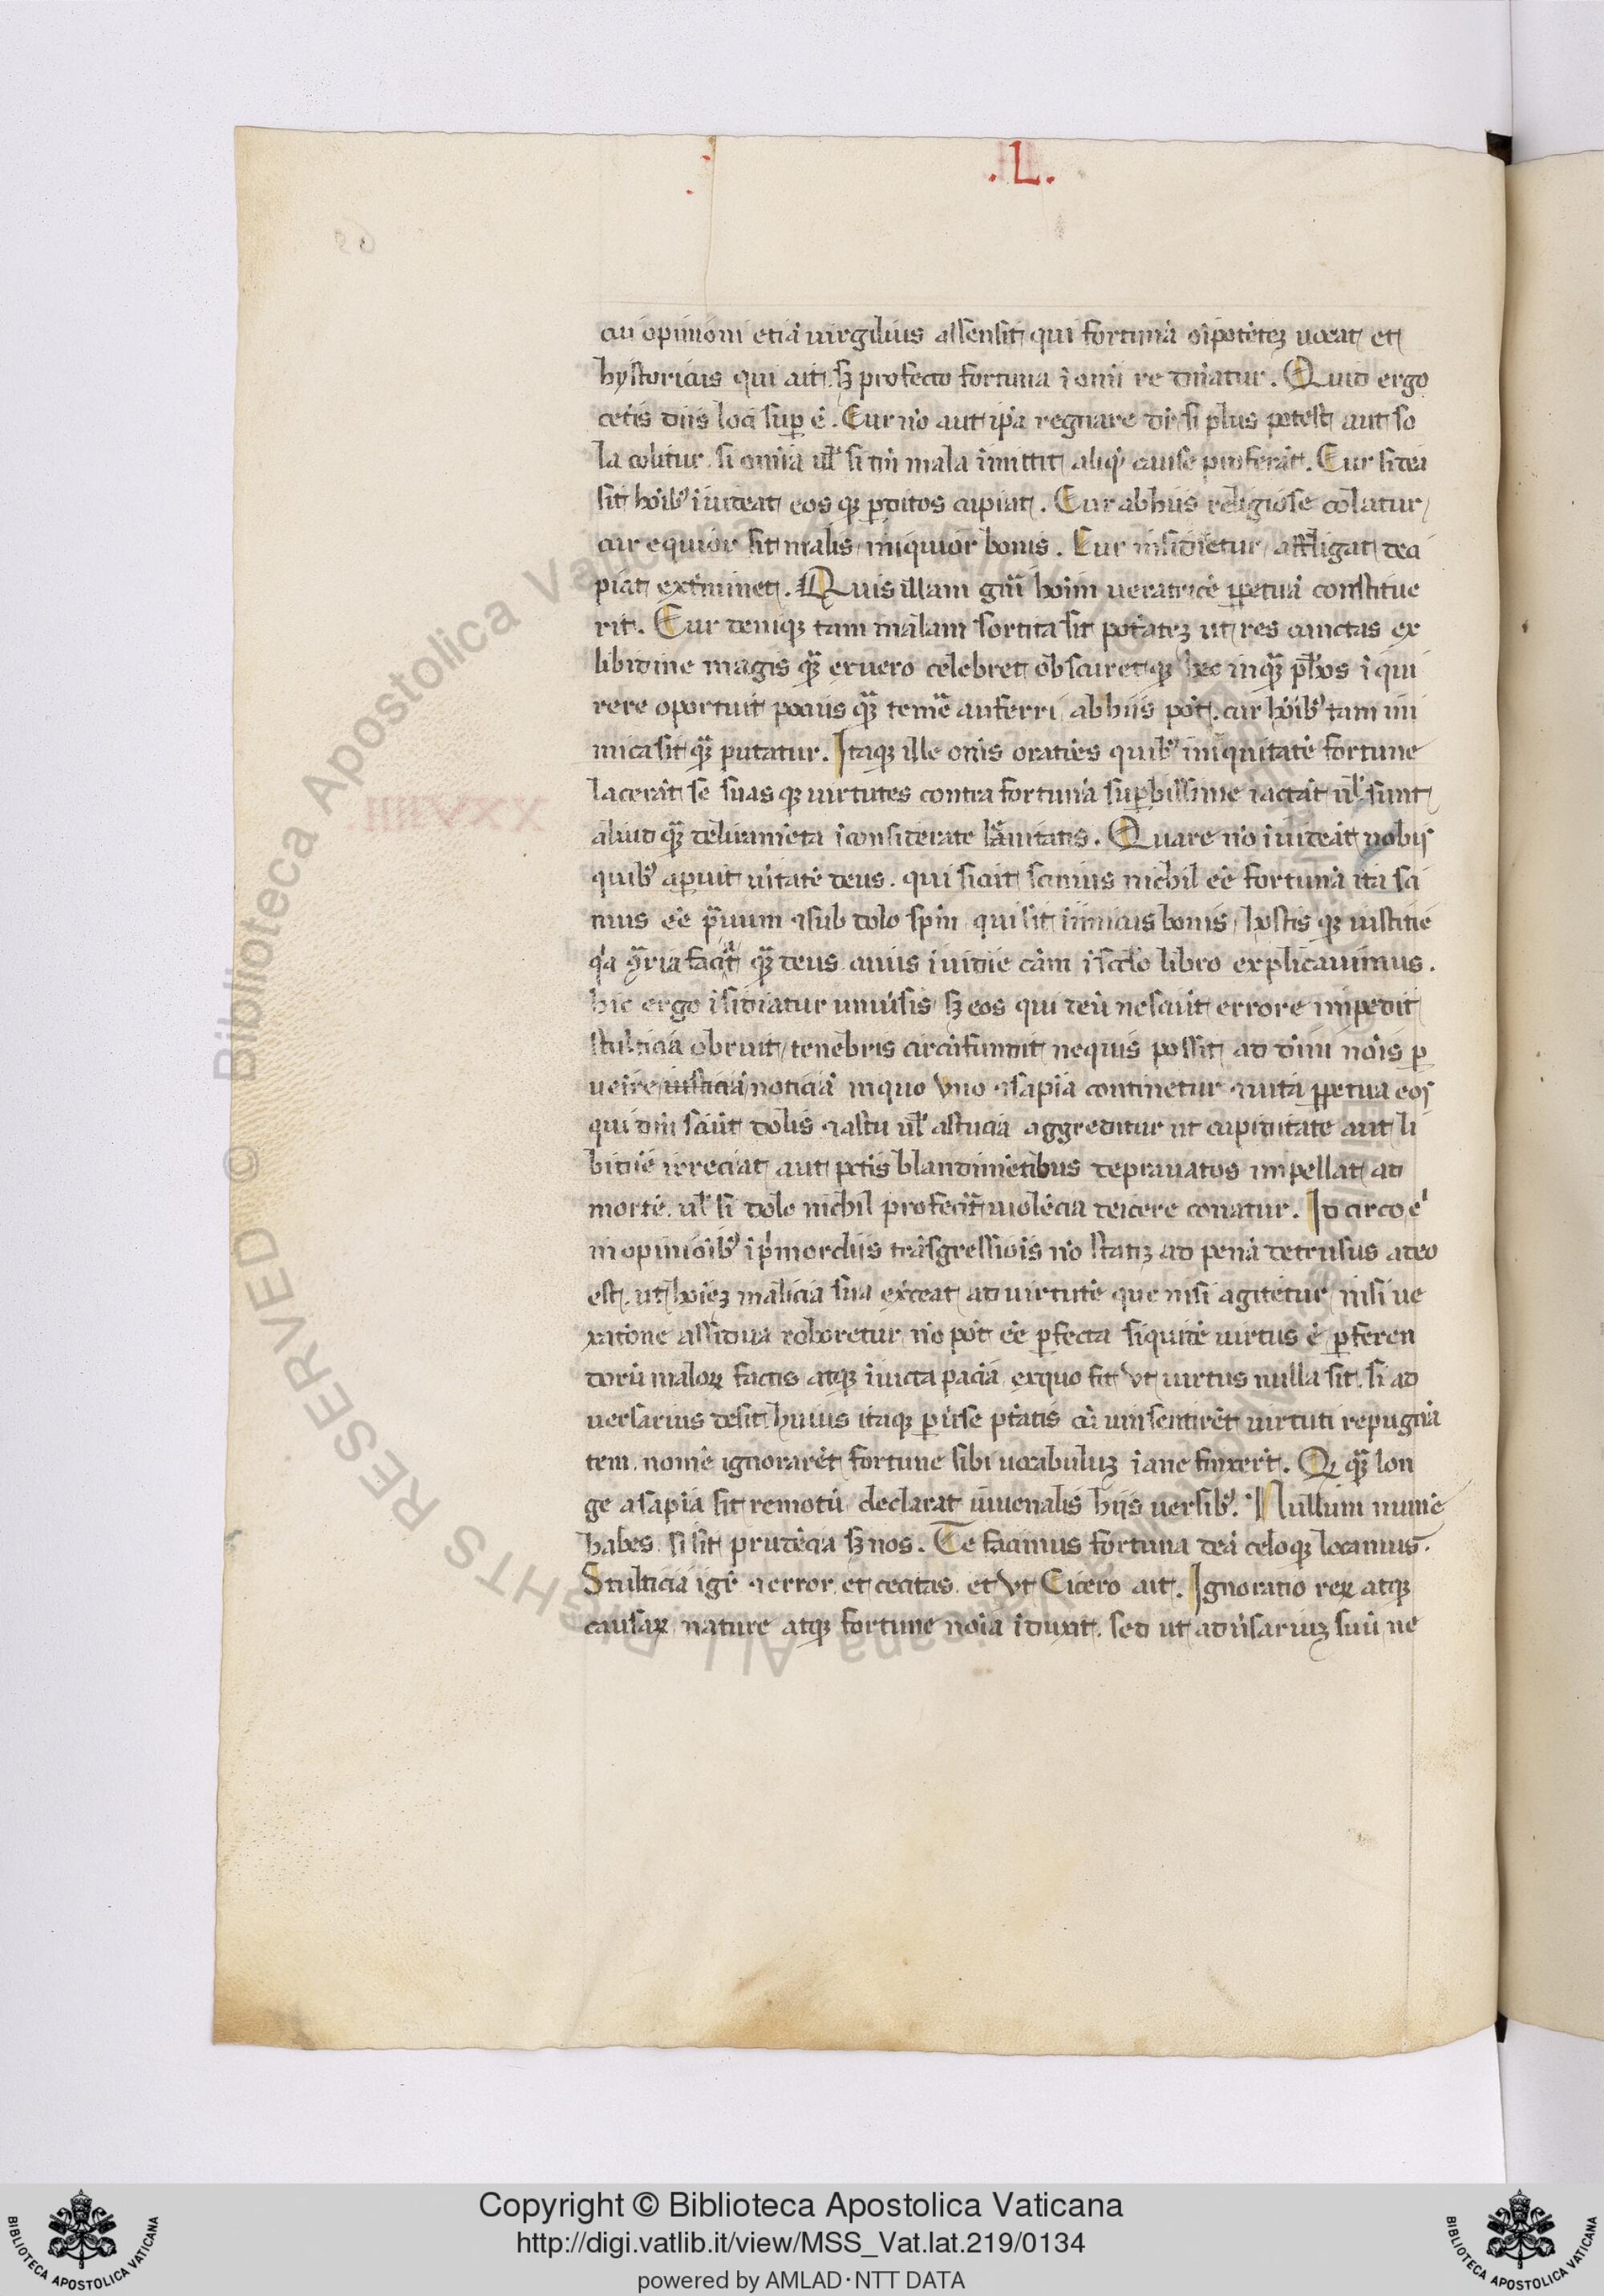 .L.
cui opinioni etiā uirgilius assensit qui fortunā oīpotētez uocat et
hystoricus qui ait. sz profecto fortuna ī omī re dn̄atur. Quid ergo
cetīs diis loci sup ē. Cur nō aut ip̄a regnare dr̄ si plus potest aut so
la colitur. si omīa ul̄ si tn̄ mala īmittit aliq̄ cause proferāt. Cur si dea
sit hōib9 īuideat eos q3 pditos cupiat. Cur ab hiis religiose colatur
cur equior sit malis iniquior bonis. Cur insidietur affligat deci
piat ext̄minet. Quis illam gn̄i hoīm ueratricē ppetuā constitue
rit. Cur deniq3 tam malam sortita sit potātez ut res cunctas ex
libidine magis q̄ ex uero celebret obscuretq3 hec inq̄ phōs īqui
rere oportuit pocius q̄ temē auferri ab hiis pōt. cur hōib9 tam ini
mica sit q̄ putatur. Itaq3 ille om̄s oratiēs quib9 iniquitatē fortune
lacerāt se suas q3 uirtutes contra fortunā supbissime iactāt ul̄ sunt
aliud q̄ deliramēta īconsiderate lāuitatis. Quare nō īuideāt nobis
quib9 apuit uītatē deus. qui sicut scimus nichil eē fortunā ita sci
mus eē prauum ⁊ sub dolo spm̄ qui sit inimicus bonis hostis q3 iusticie
q̄a 9̄ria facit q̄ deus. cuius īuidie cām ī scdo libro explicauimus.
hic ergo īsidiatur uniūsis sz eos qui deū nesciūt errore impedit
stulticiā obruit / tenebris circūfundit nequis possit ad diui nōis p
uenire iusticiā noticiā in quo vno ⁊ sapīa continetur ⁊ uita ppetua eos
qui dm̄ sciūt dolis ⁊ astu ul̄ astucia aggreditur ut cupiditate aut li
bidinē irreciat aut petīs blandimētibus deprauatos impellat ad
mortē. ul̄ si dolo nichil profecīt uiolēcia deicere conatur. Id circo .ē
in opinioīb9 ī pīmordiis trāsgressiois nō statiz ad penā detrusus a deo
est. ut hōiez malicia sua exceat ad uirtutē que nisi agitetur / nisi ue
xatōne assidua roboretur nō pōt eē pfecta siquidē uirtus ē pferen
dorū malorꝝ factis atq3 īuicta pacīa ex quo fit vt uirtus nulla sit. si ad
uersarius desit huius itaq3 pūrse ptātis cū uim sentirēt uirtuti repugnā
tem. nomē ignorarēt fortune sibi uocabuluz īane finxerūt. Qd q̄ lon
ge a sapīa sit remotū declarat iuuenalis hiis uersib9. Nullum numē
habes. si sit prudēcia sz nos. Te facimus fortuna deā celoq3 locamus.
Stulticia igr̄ ⁊ error et cecitas. et vt Cicero ait. Ignoratio rerꝝ atq3
causarꝝ nature atq3 fortune nōīa īduxit. sed ut adūsariuz suū ne
Copyright © Biblioteca Apostolica Vaticana
http://digi.vatlib.it/view/MSS_Vat.lat.219/0134
powered by AMLAD·NTT DATA
BIBLIOTECA APOSTOLICA VATICANA
BIBLIOTECA APOSTOLICA VATICANA